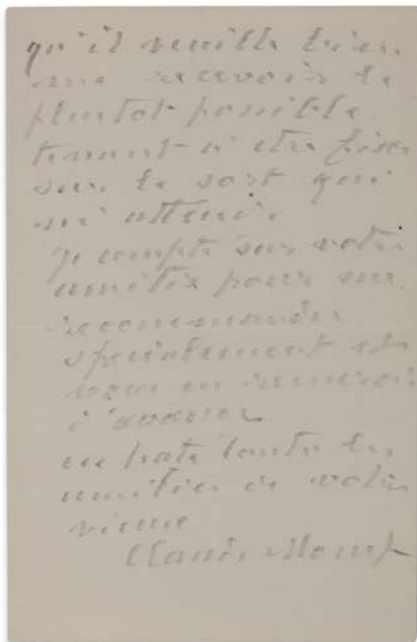 qu'il veuille bien
me recevoir le
plutot possible
tenant à etre fixé
sur le sort qui
m'attend.
je compte sur votre
amitié pour me
recommander
spécialement et
vous en remercie
d'avance
en hate toutes les
amitiés de votre
vieux
Claude Monet